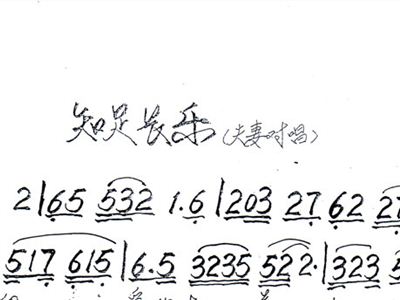 知足长乐(夫妻对唱)
2|65 532 1.6|203 27 62 27
517 615|6.5 3235 522.|323 5